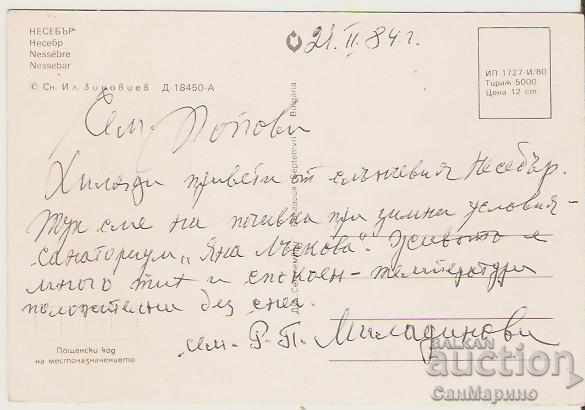 НЕСЕБЪР
Несебр
Nessèbre
Nessebar
© Сн. Ил. Зиновиев Д 18450-А
21. II. 84 г.
ИП 1727-И/80
Тираж 5000
Цена 12 ст.
Сем. Попови
Хиляди привети от слънчевия Несебър.
Тук сме на почивка при зимни условия -
санаториум „Яна Лъскова". Живота е
много тих и спокоен - температури
положителни без сняг.
сем. Р. П. Миладинови
Пощенски код
на местоназначението
Bulgaria
BALKAN
auction
СанМарино